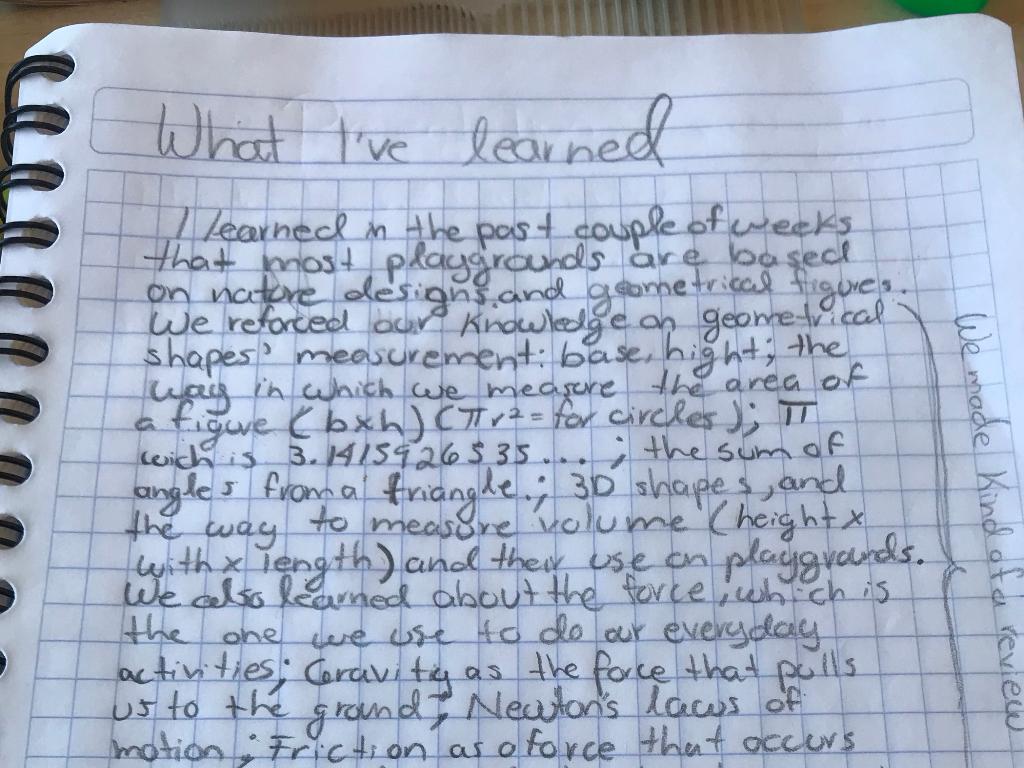 What I've learned
I learned in the past couple of weeks
that most playgrounds are based
on nature designs, and geometrical figures.
We reforced our knowledge on geometrical
shapes' measurement: base, hight; the
way in which we measure the area of
a figure (bxh) (πr²= for circles); π
wich is 3.1415926535...; the sum of
angles from a triangle.; 3D shapes, and
the way to measure volume (height x
with x length) and their use on playgrounds.
We also learned about the force, which is
the one we use to do our everyday
activities; Gravity as the force that pulls
us to the ground; Newton's laws of
motion; Friction as a force that occurs
We made kind of a review